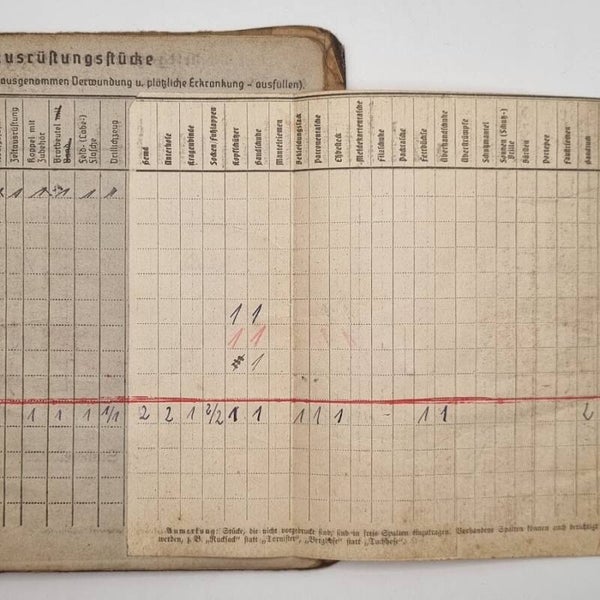 ausrüstungsstücke
(ausgenommen Verwundung u. plötzliche Erkrankung – ausfüllen).
Zeltausrüstung
Koppel mit Zubehör
Brotbeutel mit Band
Feld- (Labe-) flasche
Drillichzeug
Hemd
Unterhose
Kragenbinde
Socken / Fußlappen
Kopfschützer
Handschuhe
Mantelriemen
Bekleidungssack
Patronentasche
Eßbesteck
Meldekartentasche
Filzschuhe
Packtasche
Fettbüchse
Überhandschuhe
Überstrümpfe
Schutzmantel
Sonnen (Schutz-) Brille
Bürsten
Portepee
Faustriemen
Handtuch
1 1 1 1 1
1 1
1 1 1 1
1
1 1 1 1/1 2 2 1 2/2 1 1 1 1 1 - 1 1 2
Anmerkung: Stücke, die nicht vorgedruckt sind, sind in freie Spalten einzutragen. Vorhandene Spalten können auch berichtigt
werden, z. B. „Rucksack" statt „Tornister", „Berghose" statt „Tuchhose".